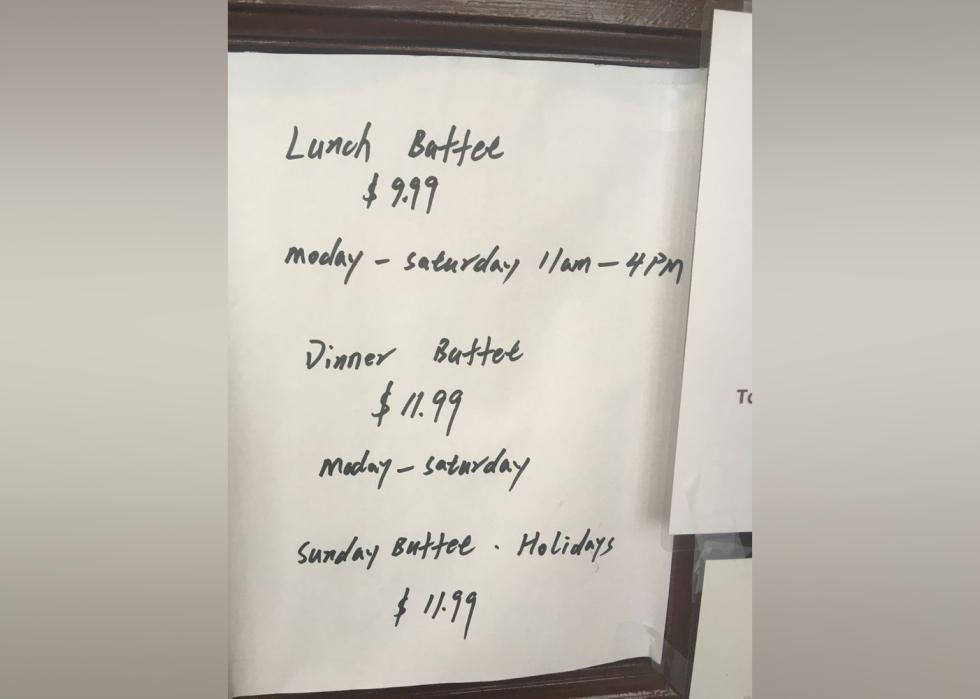 Lunch Buttee
$ 9.99
moday - saturday 11am - 4PM
Dinner Buttee
$ 11.99
moday - saturday
Sunday Buttee . Holidays
$ 11.99